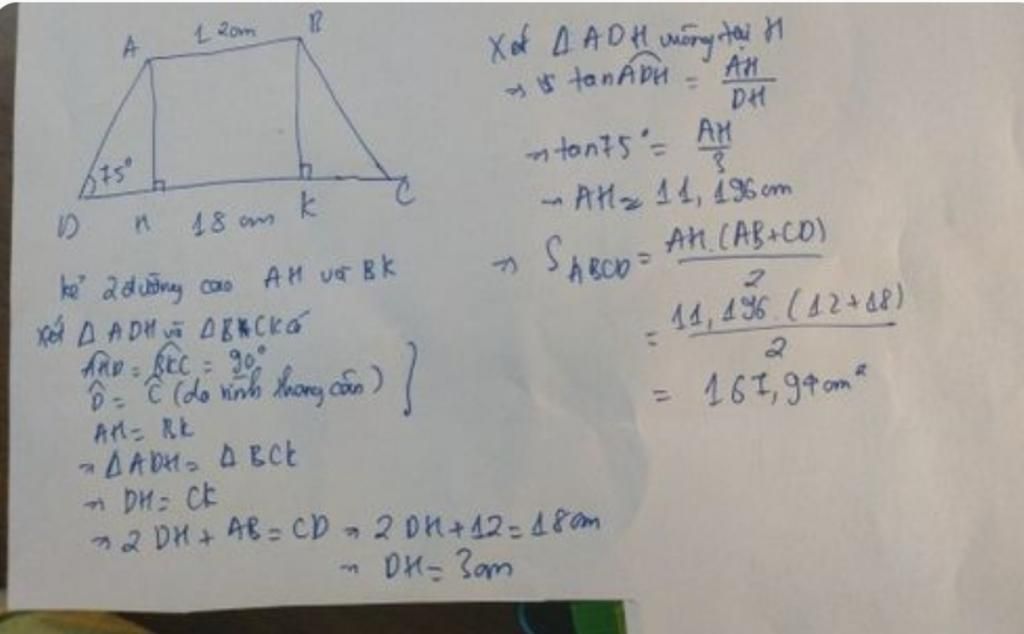 A 12cm B
75°
D H 18 cm K C
kẻ 2 đường cao AH và BK
Xét Δ ADH và ΔBCK có
AHD = BKC = 90°
D = C (do hình thang cân)
AH = BK
→ Δ ADH = Δ BCK
→ DH = CK
→ 2 DH + AB = CD → 2 DH + 12 = 18 cm
→ DH = 3cm
Xét Δ ADH vuông tại H
→ tan ADH = AH/DH
→ tan75° = AH/3
→ AH ≈ 11,196 cm
→ S ABCD = AH.(AB+CD)/2
= 11,196.(12+18)/2
= 167,94 cm²